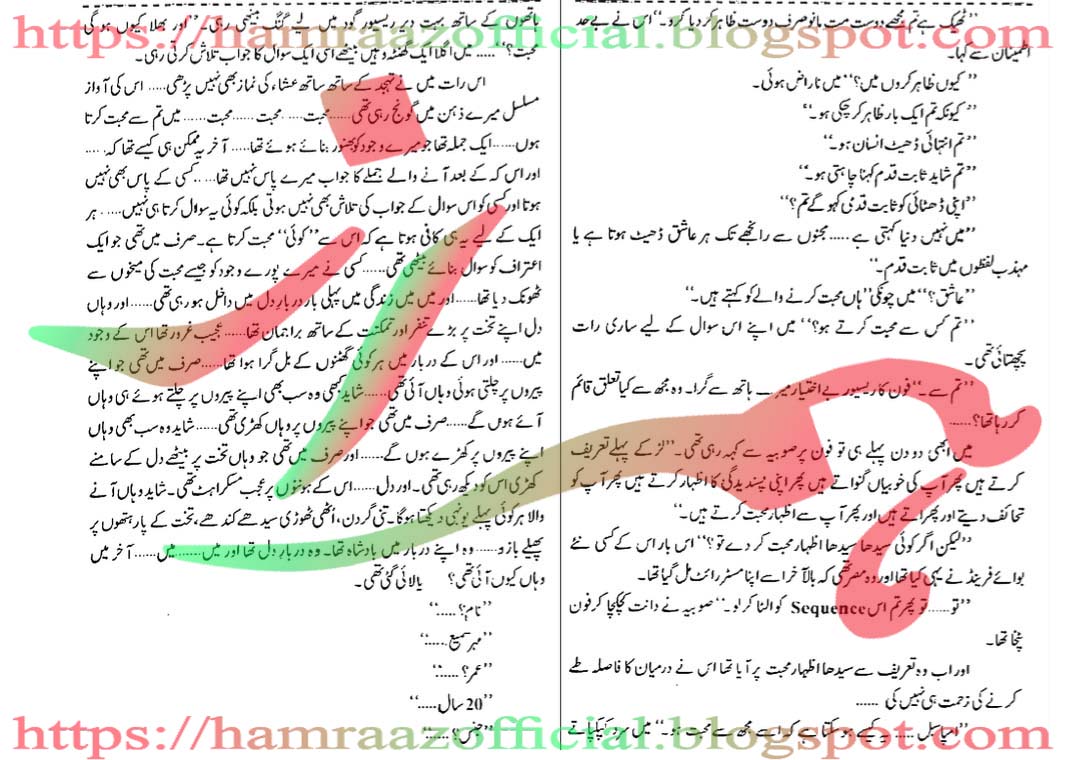 https://hamraazofficial.blogspot.com
”ٹھیک ہے تم مجھے دوست مت بانو صرف دوست ظاہر کر دیا کرو۔“ اس نے بے حد
اطمینان سے کہا۔
”کیوں ظاہر کروں میں؟“ میں ناراض ہوئی۔
”کیونکہ تم ایک بار ظاہر کر چکی ہو۔“
”تم انتہائی ڈھیٹ انسان ہو۔“
”تم شاید ثابت قدم کہنا چاہتی ہو۔“
”اپنی ڈھٹائی کو ثابت قدمی کہو گے تم؟“
”میں نہیں دنیا کہتی ہے ..... مجنوں سے رانجھے تک ہر عاشق ڈھیٹ ہوتا ہے یا
مہذب لفظوں میں ثابت قدم۔“
”عاشق؟“ میں چونکی ”ہاں محبت کرنے والے کو کہتے ہیں۔“
”تم کس سے محبت کرتے ہو؟“ میں اپنے اس سوال کے لیے ساری رات
پچھتائی تھی۔
”تم سے۔“ فون کا ریسیور بے اختیار میرے ہاتھ سے گرا۔ وہ مجھ سے کیا تعلق قائم
کر رہا تھا؟......
میں ابھی دو دن پہلے ہی تو فون پر صوبیہ سے کہہ رہی تھی۔ ”لڑکے پہلے تعریف
کرتے ہیں پھر آپ کی خوبیاں گنواتے ہیں پھر اپنی پسندیدگی کا اظہار کرتے ہیں پھر آپ کو
تحائف دیتے اور پھراتے ہیں اور پھر آپ سے اظہار محبت کرتے ہیں۔“
”لیکن اگر کوئی سیدھا سیدھا اظہار محبت کر دے تو؟“ اس بار اس کے کسی نئے
بوائے فرینڈ نے یہی کیا تھا اور وہ مصر تھی کہ بالآخر اسے اپنا مسٹر رائٹ مل گیا تھا۔
”تو...... تو پھر تم اس Sequence کو الٹا کر لو۔“ صوبیہ نے دانت کچکچا کر فون
پٹخا تھا۔
اور اب وہ تعریف سے سیدھا اظہار محبت پر آیا تھا اس نے درمیان کا فاصلہ طے
کرنے کی زحمت ہی نہیں کی ......
”امپاسبل ..... یہ کیسے ہو سکتا ہے کہ اسے مجھ سے محبت ہو۔“ میں سرد کپکپاتے
ہاتھوں کے ساتھ بہت دیر ریسیور گود میں لیے گنگ بیٹھی رہی۔ ”اور بھلا کیوں ہو گی
محبت؟“ ..... میں اگلا ایک گھنٹہ وہیں بیٹھے اسی ایک سوال کا جواب تلاش کرتی رہی۔
اس رات میں نے تہجد کے ساتھ ساتھ عشاء کی نماز بھی نہیں پڑھی..... اس کی آواز
مسلسل میرے ذہن میں گونج رہی تھی ..... محبت..... محبت ..... محبت...... میں تم سے محبت کرتا
ہوں...... ایک جملہ تھا جو میرے وجود کو بھنور بنائے ہوئے تھا..... آخر یہ ممکن ہی کیسے تھا کہ .....
اور اس کہ کے بعد آنے والے جملے کا جواب میرے پاس نہیں تھا..... کسی کے پاس بھی نہیں
ہوتا اور کسی کو اس سوال کے جواب کی تلاش بھی نہیں ہوتی بلکہ کوئی یہ سوال کرتا ہی نہیں..... ہر
ایک کے لیے یہ ہی کافی ہوتا ہے کہ اس سے ”کوئی“ محبت کرتا ہے۔ صرف میں تھی جو ایک
اعتراف کو سوال بنائے بیٹھی تھی..... کسی نے میرے پورے وجود کو جیسے محبت کی میخوں سے
ٹھونک دیا تھا..... اور میں میں زندگی میں پہلی بار دربار دل میں داخل ہو رہی تھی..... اور وہاں
دل اپنے تخت پر بڑے تنفر اور تمکنت کے ساتھ براجمان تھا...... عجیب غرور تھا اس کے وجود
میں...... اور اس کے دربار میں ہر کوئی گھٹنوں کے بل گرا ہوا تھا...... صرف میں تھی جو اپنے
پیروں پر چلتی ہوئی وہاں آئی تھی...... شاید کبھی وہ سب بھی اپنے پیروں پر چلتے ہوئے ہی وہاں
آئے ہوں گے..... صرف میں تھی جو اپنے پیروں پر وہاں کھڑی تھی..... شاید وہ سب بھی وہاں
اپنے پیروں پر کھڑے ہوں گے...... اور صرف میں تھی جو وہاں تخت پر بیٹھے دل کے سامنے
کھڑی اس کو دیکھ رہی تھی۔ اور دل..... اس کے ہونٹوں پر عجب مسکراہٹ تھی۔ شاید وہاں آنے
والا ہر کوئی پہلے یونہی دیکھتا ہو گا۔ تنی گردن، اُٹھی ٹھوڑی سیدھے کندھے، تخت کے پار ہتھوں پر
پھیلے بازو..... وہ اپنے دربار میں بادشاہ تھا۔ وہ دربار دل تھا اور میں...... میں...... آخر میں
وہاں کیوں آئی تھی؟ یا لائی گئی تھی۔
”نام؟.....“
”مہر سمیع.....“
”عمر؟.....“
”20 سال.....“
”جنس؟.....“
https://hamraazofficial.blogspot.com